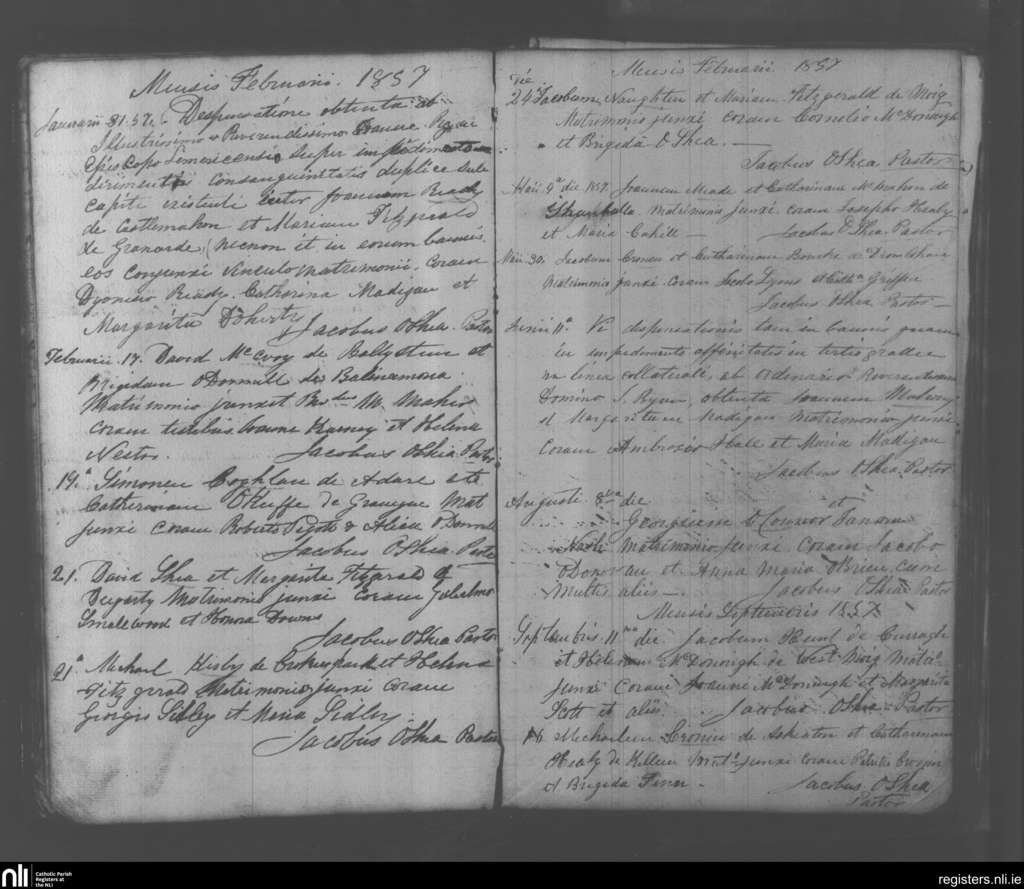 Mensis Februarii. 1857
Januarii 31. 57. Dispensatione obtenta ab
Illustrissimo & Reverendissimo Joanne Ryan
Episcopo Limericensis super impedimento
dirimenti consanguinitatis duplice sub
capite existenti inter Joannem Brady
de Castlemahon et Mariam Fitzgerald
de Granarde, necnon et in eorum bannis
eos conjunxi vinculo matrimonii. Coram
Dyonisio Brady. Catherina Madigan et
Margarita Doherty
Jacobus OShea. Pastor
Februarii. 17. David McEvoy de Ballysteen et
Brigidam ODonnell de Balinamona
Matrimonio junxit M. Meehir
coram testibus Joanne Kearney et Helena
Nestor. Jacobus OShea Pastor
19a Simonem Coghlan de Adare et
Catherinam OKeeffe de Graneque Mat
junxi coram Roberto Pigott & Alicia ODonnell
Jacobus OShea. Pastor
21. David Shea et Margarita Fitzgerald
Matrimonio junxi coram Gulielmo
Smallwood et Honora Downes
Jacobus OShea Pastor
21a Michael Kirby de et Helena
Fitzgerald Matrimonio junxi coram
Georgio Sidley et Maria Sidley.
Jacobus OShea Pastor
Mensis Februarii 1857
Die
24 Jacobum Naughten et Mariam Fitzgerald de Moig
Matrimonio junxi coram Cornelio McDonough
et Brigida OShea.
Jacobus OShea Pastor
Maii 9a die 1857. Joannem Meade et Catharinam McMahon de
Shanballa matrimonio junxi coram Josepho Healy
et Maria Cahill Jacobus OShea Pastor
Maii 30. Jacobum Cronan et Catharinam Bourke de
Matrimonio junxi coram Jacobo Lyons & Griffin
Jacobus OShea Pastor
Junii 11a Vi dispensationis tam in bannis quam
in impedimento affinitatis in tertio gradu
in linea collaterali, ab Ordinario Reverendissimo
Domino J. Ryan, obtenta Joannem
et Margaritam Madigan matrimonio junxi
coram Ambrosio Hall et Maria Madigan
Jacobus OShea Pastor
Augusti die et
Georgium OConnor
Matrimonio junxi coram Jacobo
ODonovan et Anna Maria OBrien cum
multis aliis Jacobus OShea Pastor
Mensis Septembris 1857
Septembris 11 die Jacobum Hunt de Curragh
et Helenam McDonough de West Moig Matri
junxi coram Joanne McDonough et Margarita
Scott et aliis. Jacobus OShea Pastor
16 Michaelem Cronin de Askeaton et Catharinam
Healy de Killeen junxi coram Patritio
et Brigida Finn.
Jacobus OShea
Pastor
nli
Catholic Parish
Registers at
the NLI
registers.nli.ie